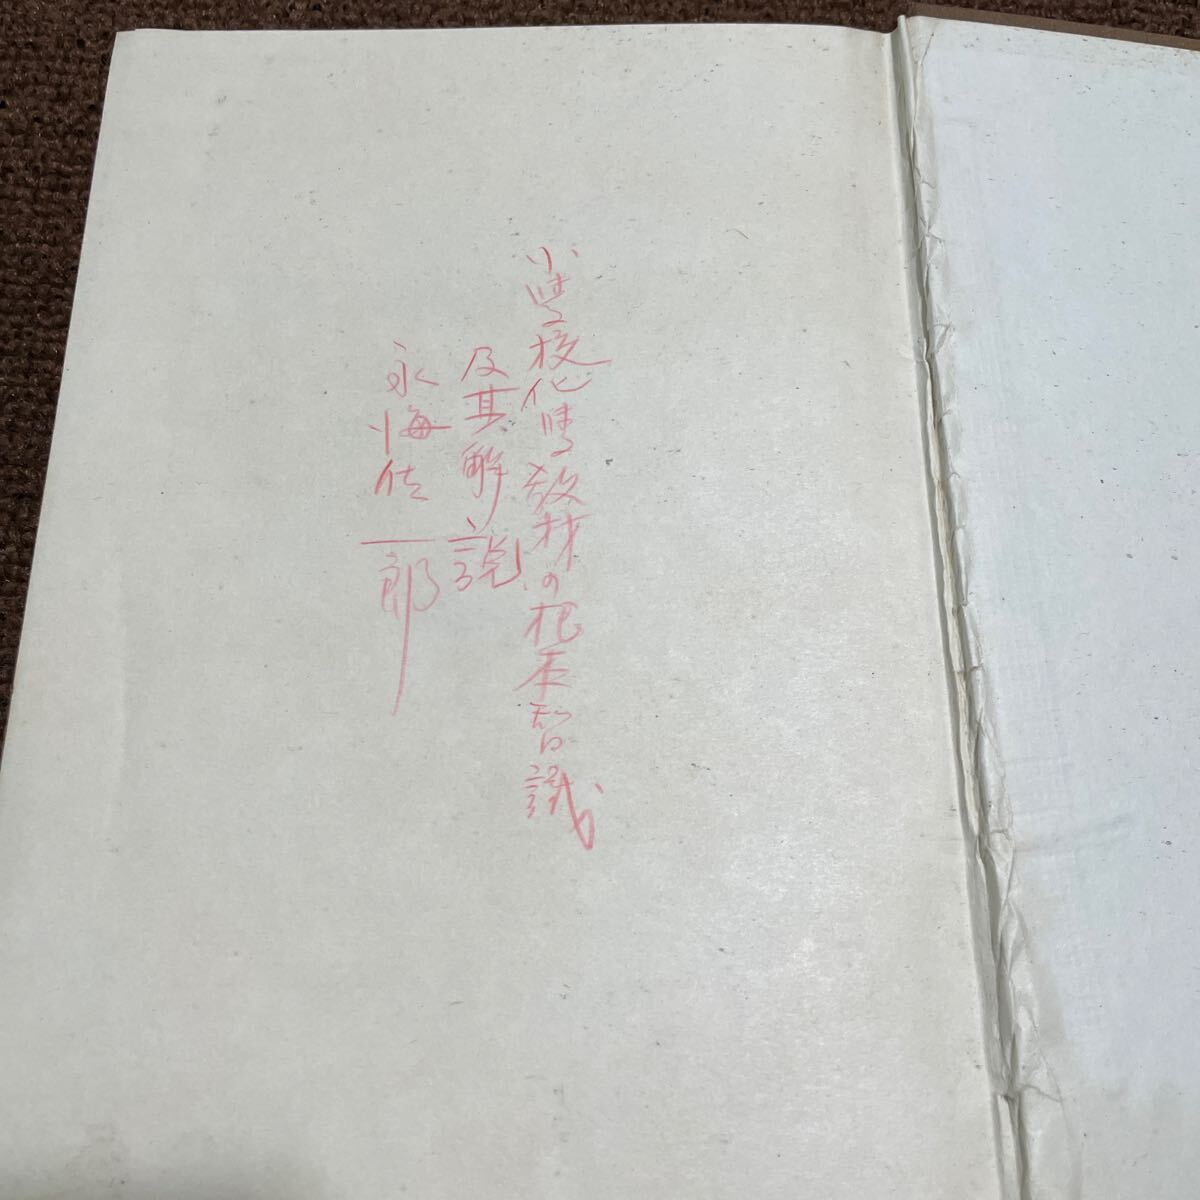 小学校化学教材の根本智識
及其解説
永海佐一郎